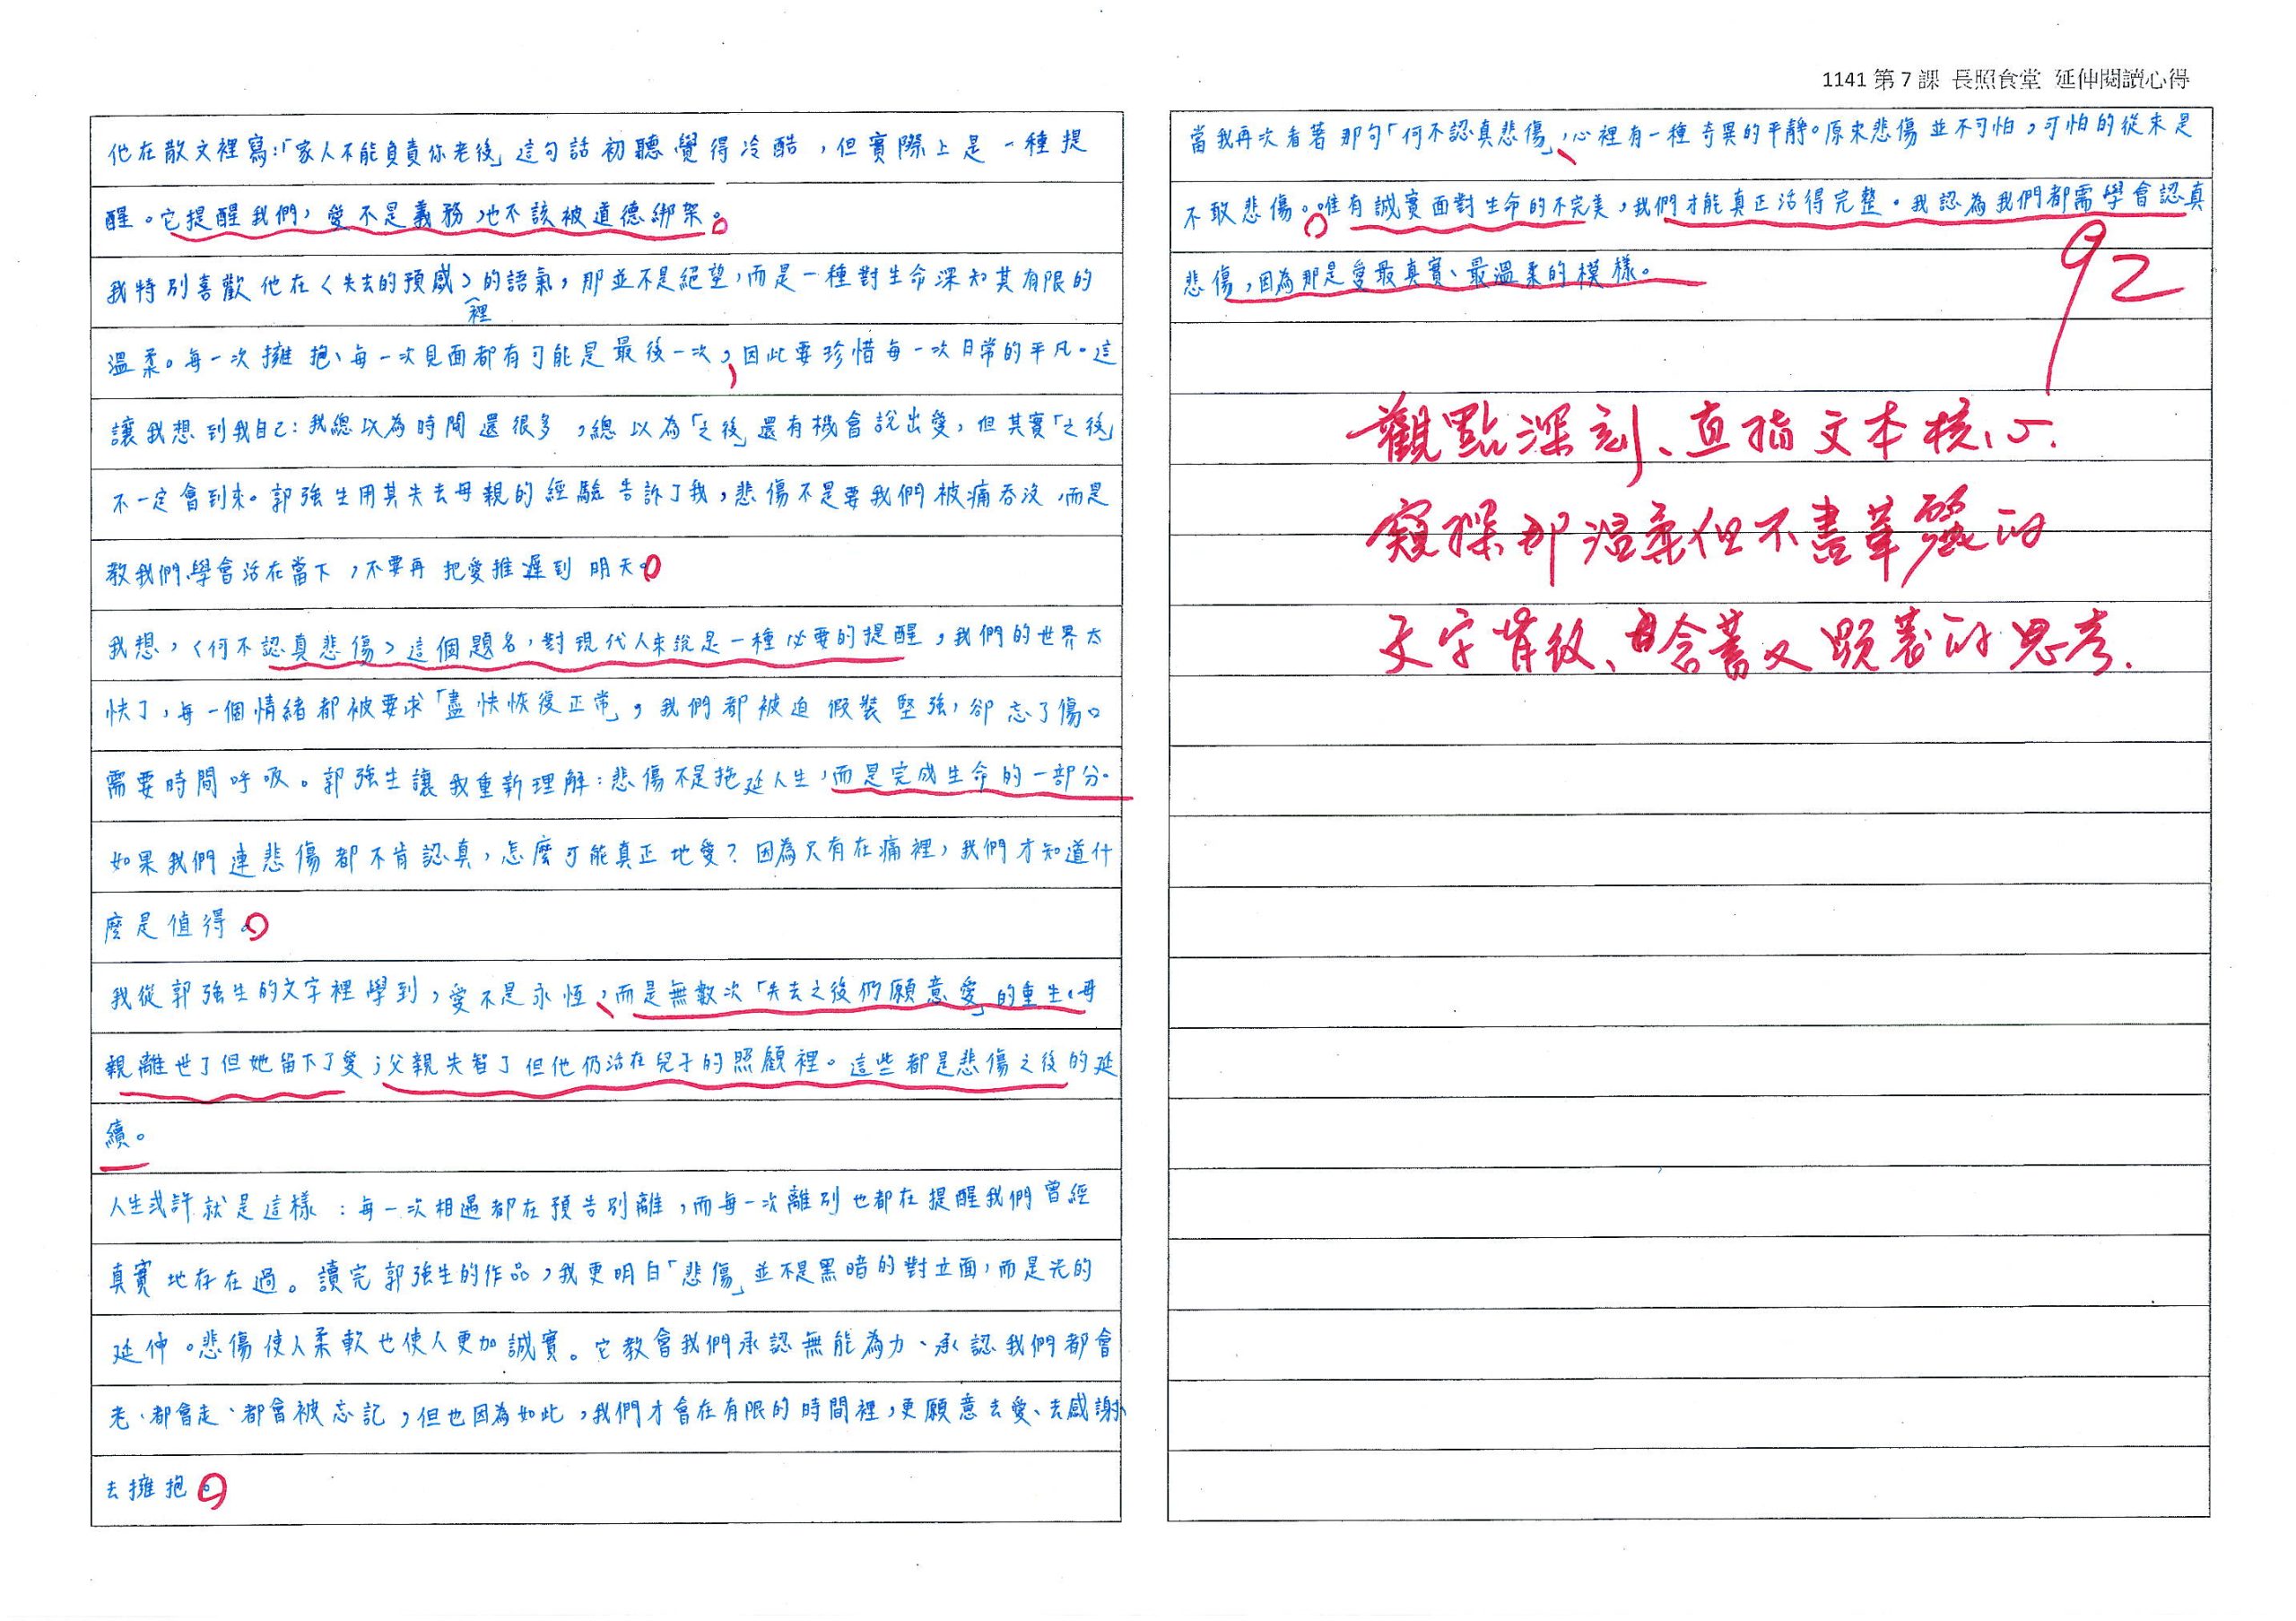 1141 第 7 課 長照食堂 延伸閱讀心得
他在散文裡寫:「家人不能負責你老後」這句話初聽覺得冷酷,但實際上是一種提
醒。它提醒我們,愛不是義務,也不該被道德綁架。
我特別喜歡他在〈失去的預感〉裡的語氣,那並不是絕望,而是一種對生命深知其有限的
溫柔。每一次擁抱、每一次見面都有可能是最後一次,因此要珍惜每一次日常的平凡。這
讓我想到我自己:我總以為時間還很多,總以為「之後」還有機會說出愛,但其實「之後」
不一定會到來。郭強生用其失去母親的經驗告訴了我,悲傷不是要我們被痛吞沒,而是
教我們學會活在當下,不要再把愛推遲到明天。
我想,〈何不認真悲傷〉這個題名,對現代人來說是一種必要的提醒,我們的世界太
快了,每一個情緒都被要求「盡快恢復正常」,我們都被迫假裝堅強,卻忘了傷口
需要時間呼吸。郭強生讓我重新理解:悲傷不是拖延人生,而是完成生命的一部分。
如果我們連悲傷都不肯認真,怎麼可能真正地愛?因為只有在痛裡,我們才知道什
麼是值得。
我從郭強生的文字裡學到,愛不是永恆,而是無數次「失去之後仍願意愛」的重生。母
親離世了但她留下了愛;父親失智了但他仍活在兒子的照顧裡。這些都是悲傷之後的延
續。
人生或許就是這樣:每一次相遇都在預告別離,而每一次離別也都在提醒我們曾經
真實地存在過。讀完郭強生的作品,我更明白「悲傷」並不是黑暗的對立面,而是光的
延伸。悲傷使人柔軟也使人更加誠實。它教會我們承認無能為力、承認我們都會
老、都會走、都會被忘記,但也因為如此,我們才會在有限的時間裡,更願意去愛、去感謝、
去擁抱。
當我再次看著那句「何不認真悲傷」,心裡有一種奇異的平靜。原來悲傷並不可怕,可怕的從來是
不敢悲傷。唯有誠實面對生命的不完美,我們才能真正活得完整。我認為我們都需學會認真
悲傷,因為那是愛最真實、最溫柔的模樣。
92
觀點深刻、直指文本核心.
窺探那溫柔但不盡華麗的
文字背後、含蓄又顯著的思考.